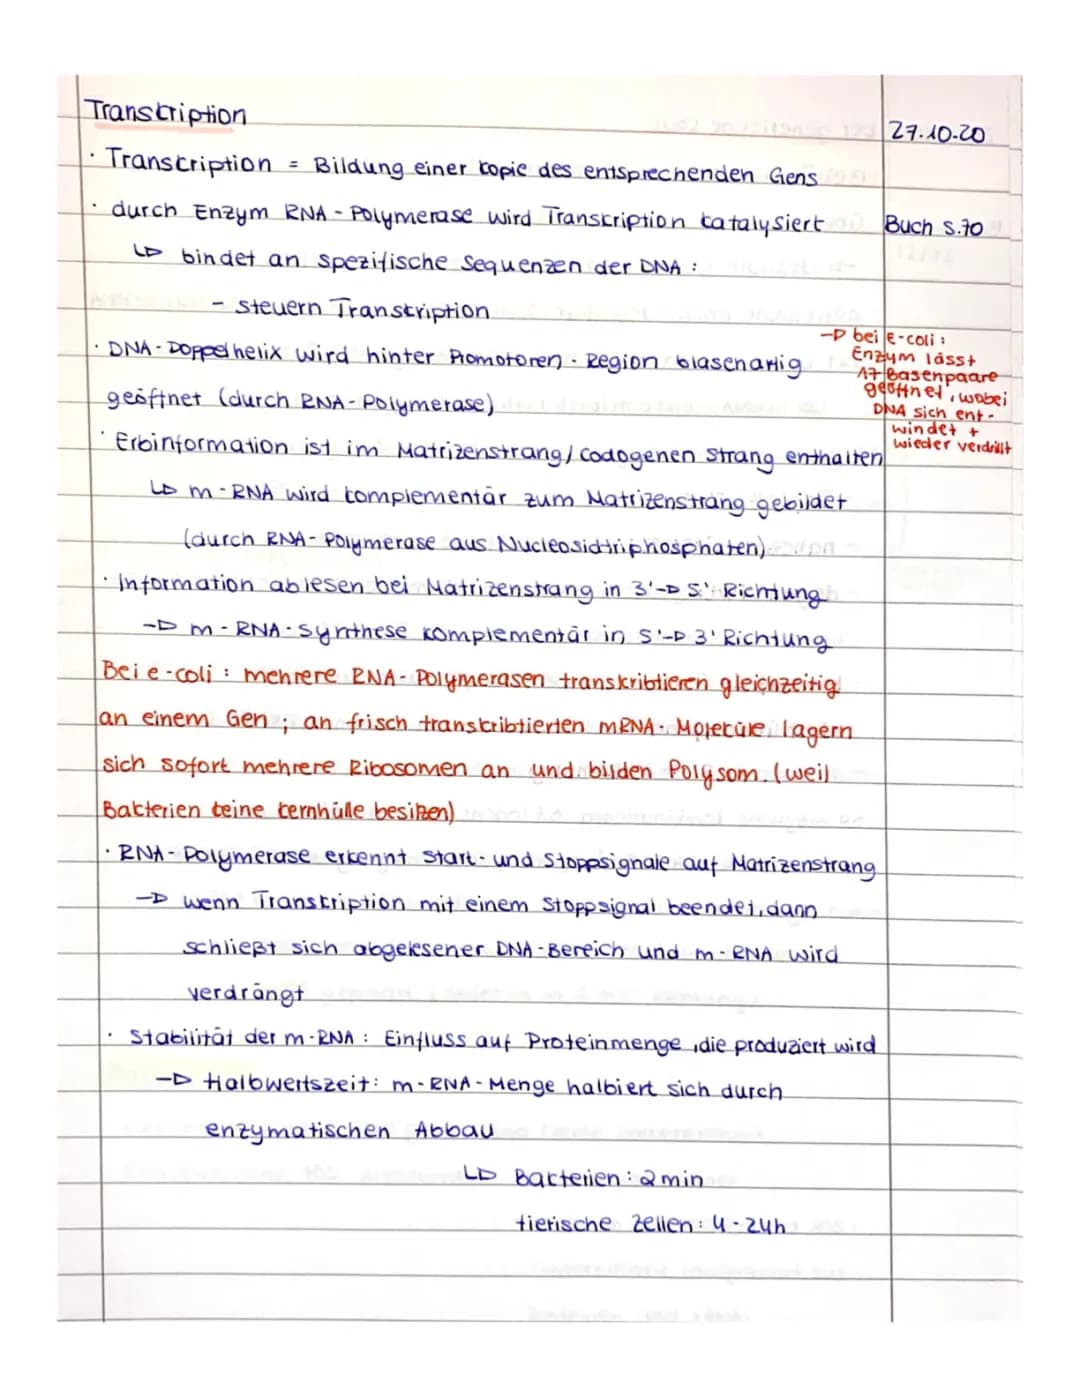 Transkription
27.10.20
· Transkription = Bildung einer Kopie des entsprechenden Gens
· durch Enzym RNA-Polymerase wird Transkription katalysiert
Buch S.70
↳ bindet an spezifische Sequenzen der DNA:
- steuern Transkription
· DNA-Doppelhelix wird hinter Promotoren-Region blasenartig
geöffnet (durch RNA-Polymerase)
→ bei e-coli:
Enzym lässt
17 Basenpaare
geöffnet, wobei
DNA sich ent-
windet +
wieder verdrillt
· Erbinformation ist im Matrizenstrang/codogenen Strang enthalten
↳ m-RNA wird komplementär zum Matrizenstrang gebildet
(durch RNA-Polymerase aus Nucleosidtriphosphaten)
· Information ablesen bei Matrizenstrang in 3'→5' Richtung
→ m-RNA-Synthese komplementär in 5'→3' Richtung
Bei e-coli: mehrere RNA-Polymerasen transkribtieren gleichzeitig
an einem Gen; an frisch transkribtierten mRNA-Moleküle lagern
sich sofort mehrere Ribosomen an und bilden Polysom. (weil
Bakterien keine Kernhülle besitzen)
· RNA-Polymerase erkennt Start- und Stoppsignale auf Matrizenstrang
→ wenn Transkription mit einem Stoppsignal beendet, dann
schließt sich abgelesener DNA-Bereich und m-RNA wird
verdrängt
· Stabilität der m-RNA: Einfluss auf Proteinmenge, die produziert wird
→ Halbwertszeit: m-RNA-Menge halbiert sich durch
enzymatischen Abbau
↳ Bakterien: 2 min
tierische Zellen: 4-24h